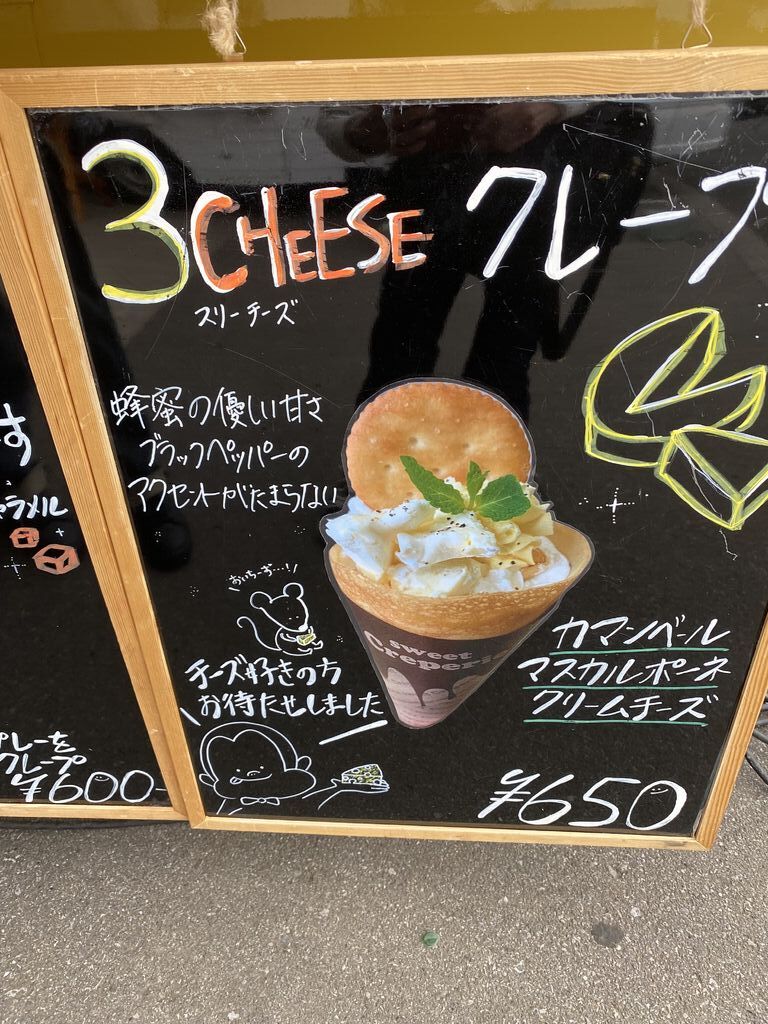 3 CHEESE クレープ
スリーチーズ
蜂蜜の優しい甘さ
ブラックペッパーの
アクセントがたまらない
おいちーずー!
チーズ好きの方
お待たせしました
sweet
Creperi
カマンベール
マスカルポーネ
クリームチーズ
¥650
す
ャラメル
プレーを
クレープ
¥600-